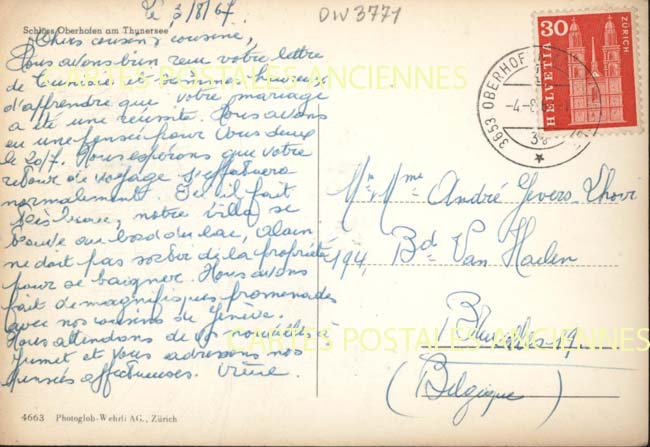 Le 3/8/67
DW3771
Schloss Oberhofen am Thunersee
Chers cousin, cousine,
Nous avons bien reçu votre lettre
de Tunisie et sommes heureux
d'apprendre que votre mariage
a été une réussite. Nous avons
eu une pensée pour vous deux
le 20/7. Nous espérons que votre
retour de voyage s'effectuera
normalement. Ici il fait
très beau, notre villa se
trouve au bord du lac, Alain
ne doit pas sortir de la propriété
pour se baigner. Nous avons
fait de magnifiques promenades
avec nos cousins de Genève.
Nous attendons de vos nouvelles à
Jumet et vous adressons nos
pensées affectueuses.
4663 Photoglob-Wehrli AG., Zürich
30
HELVETIA
ZÜRICH
3653 OBERHOF
-4-8
Mr Mme André
194, Bd Van Haelen
Bruxelles 19
(Belgique)
CARTES POSTALES ANCIENNES
CARTES POSTALES ANCIENNES